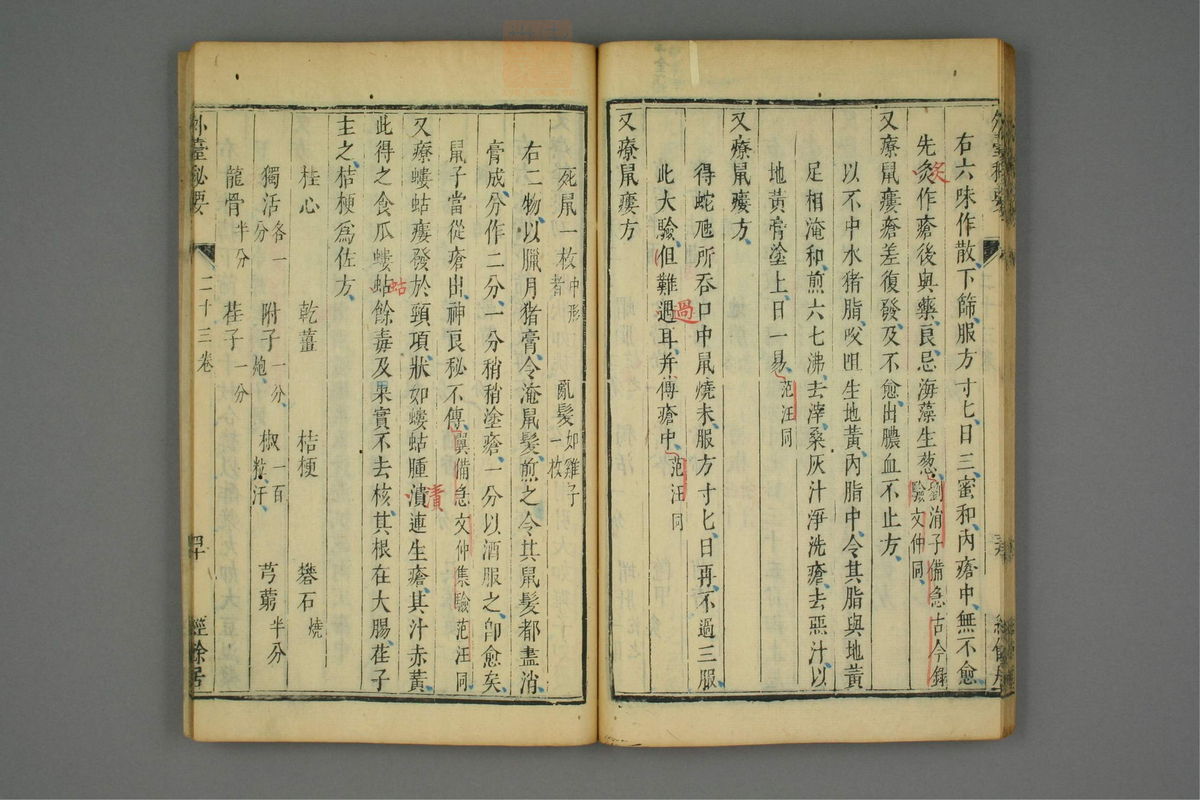 右六味作散下篩服方寸匕日三蜜和內瘡中無不愈
先灸作瘡後與藥良忌海藻生葱劉涓子備急古今錄驗文仲同
灸
又療鼠瘻瘡差復發及不愈出膿血不止方
以不中水猪脂㕮咀生地黃內脂中令其脂與地黃
足相淹和煎六七沸去滓桑灰汁淨洗瘡去惡汁以
地黃膏塗上日一易范汪同
又療鼠瘻方
得蛇虺所吞口中鼠燒末服方寸匕日再不過三服
此大驗但難過耳并傅瘡中范汪同
過
又療鼠瘻方
死鼠一枚中形者 亂髮如雞子一枚
右二物以臘月猪膏令淹鼠髮煎之令其鼠髮都盡消
膏成分作二分一分稍稍塗瘡一分以酒服之卽愈矣
鼠子當從瘡出神良秘不傳翼備急文仲集驗范汪同
又療螻蛄瘻發於頸項狀如螻蛄腫潰連生瘡其汁赤黃
潰
此得之食瓜螻蛄餘毒及果實不去核其根在大腸荏子
蛄
主之桔梗爲佐方
桂心 乾薑 桔梗 礬石燒
獨活各一分 附子一分炮 椒一百粒汗 芎藭半分
龍骨半分 荏子一分
外臺秘要 二十三卷 四十 經餘居